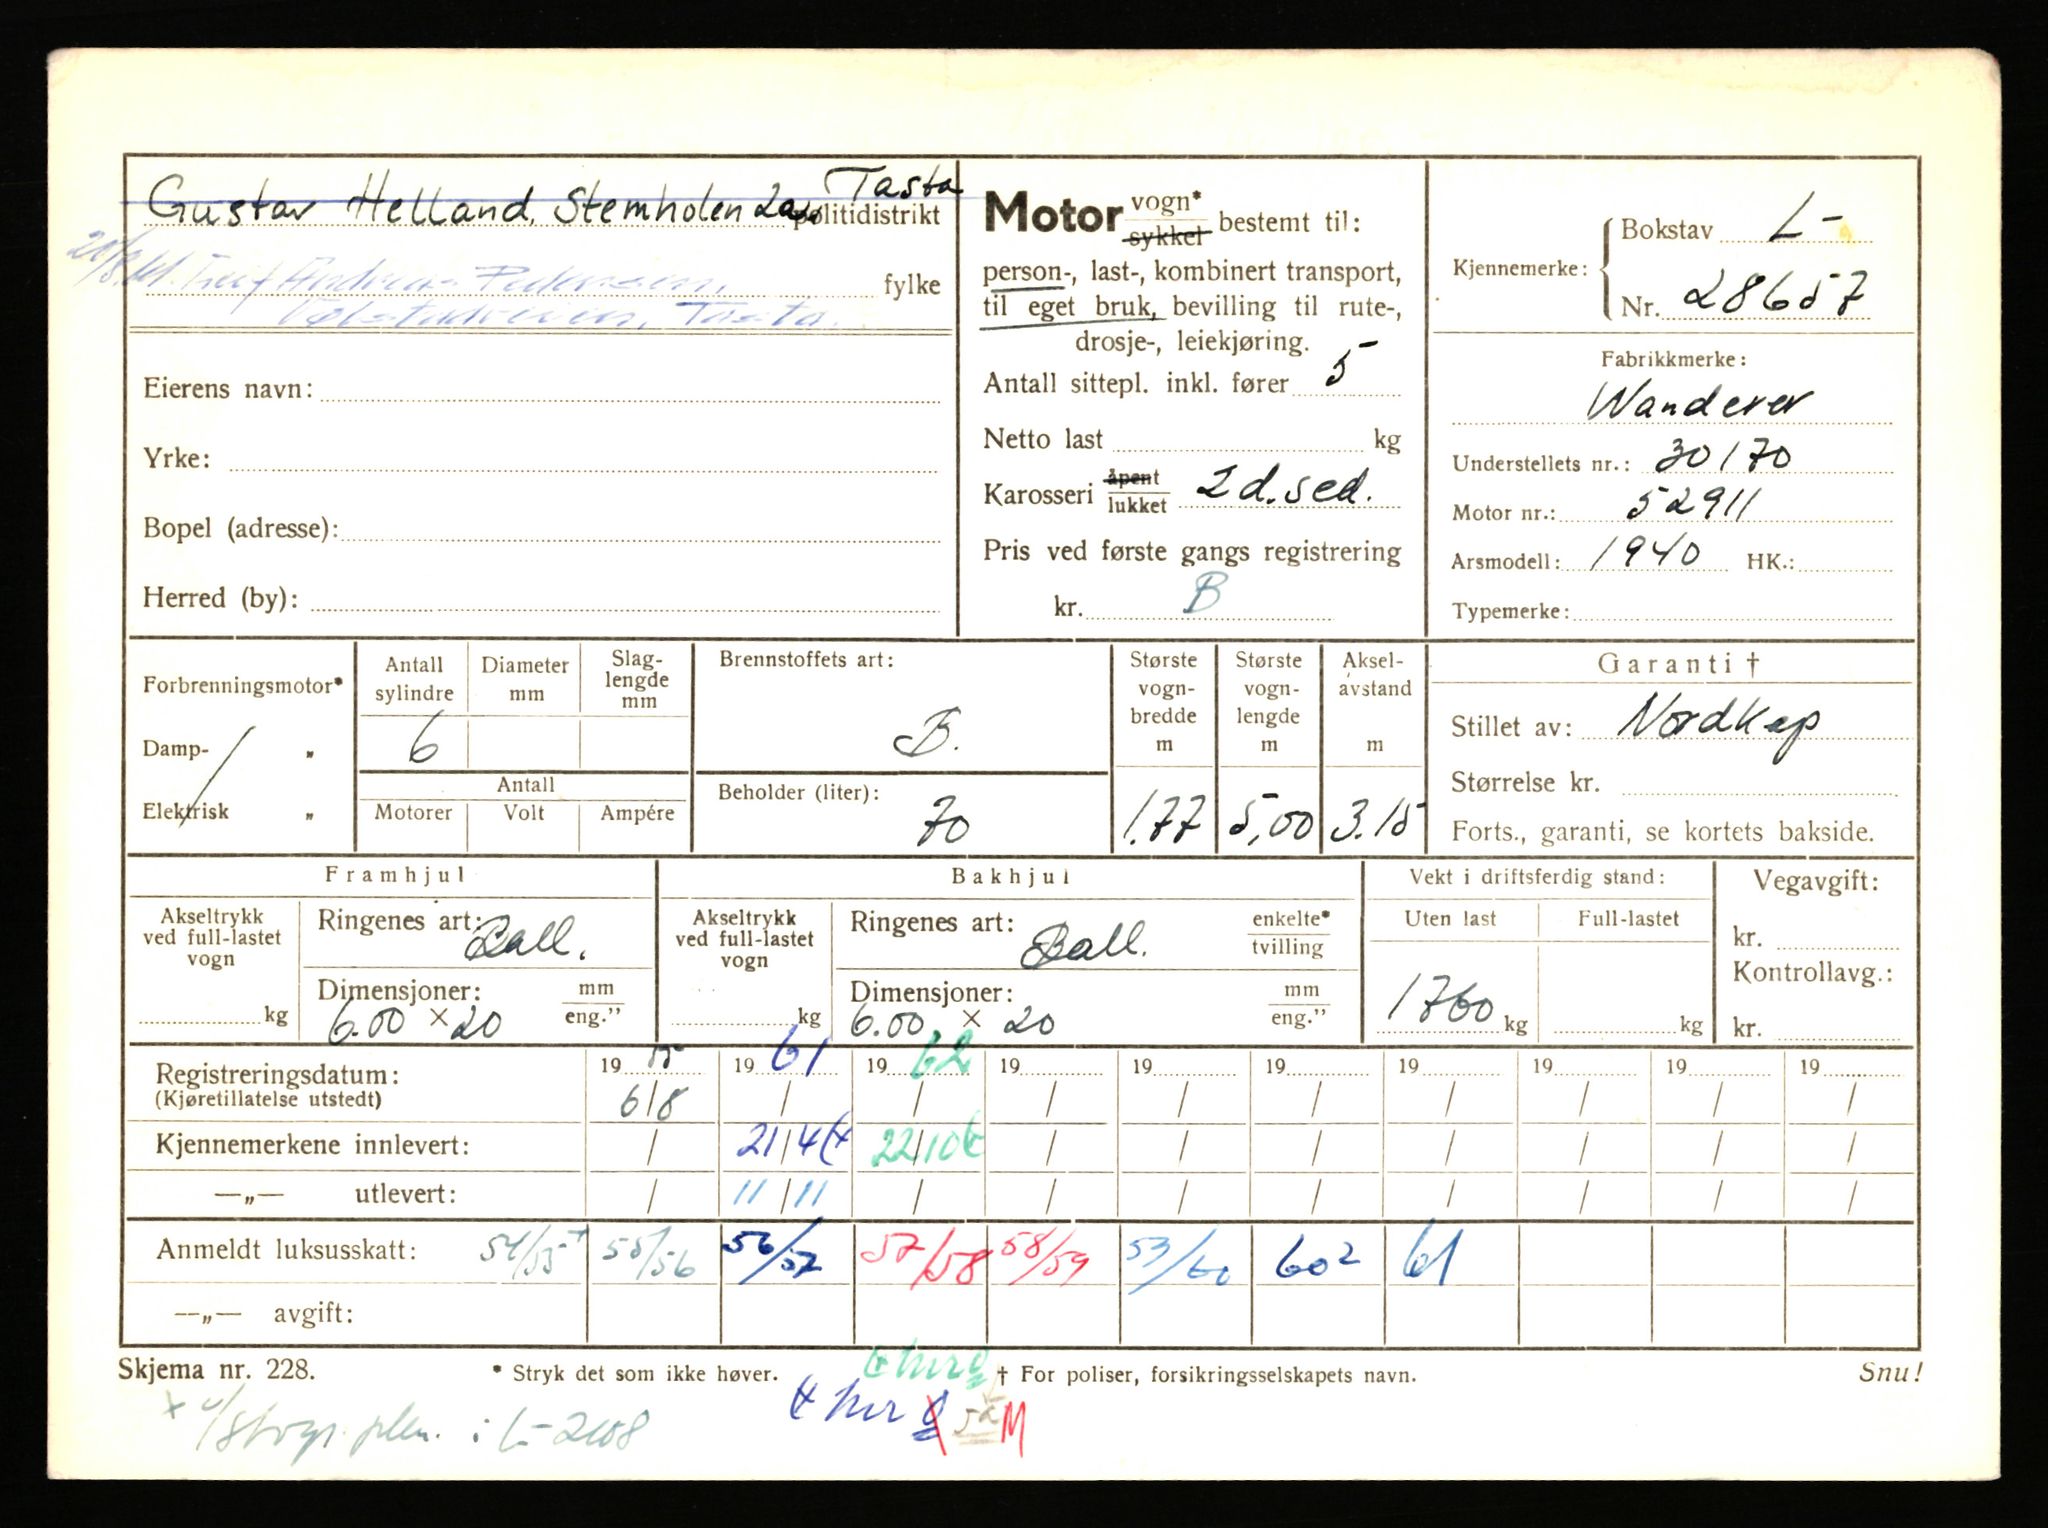 Tasta
Gustav Helland, Stemholen politidistrikt
Andreas Pedersen, fylke
Tasta.
Eierens navn:
Yrke:
Bopel (adresse):
Herred (by):
Motor vogn* sykkel bestemt til:
person-, last-, kombinert transport,
til eget bruk, bevilling til rute-,
drosje-, leiekjøring.
Antall sittepl. inkl. fører 5
Netto last kg
Karosseri åpent lukket 2 d. sed.
Pris ved første gangs registrering
kr. B
Kjennemerke: Bokstav L-
Nr. 28657
Fabrikkmerke:
Wanderer
Understellets nr.: 30170
Motor nr.: 52911
Arsmodell: 1940 HK.:
Typemerke:
Forbrenningsmotor*
Damp- „
Elektrisk „
Antall sylindre 6
Diameter mm
Slag-lengde mm
Antall
Motorer Volt Ampére
Brennstoffets art:
B.
Beholder (liter):
70
Største vogn-bredde m 1.77
Største vogn-lengde m 5,00
Aksel-avstand m 3.15
Garanti †
Stillet av: Nordkap
Størrelse kr.
Forts., garanti, se kortets bakside.
Framhjul
Akseltrykk ved full-lastet vogn
kg
Ringenes art: Ball.
Dimensjoner: mm eng."
6.00 × 20
Bakhjul
Akseltrykk ved full-lastet vogn
kg
Ringenes art: Ball. enkelte* tvilling
Dimensjoner: mm eng."
6.00 × 20
Vekt i driftsferdig stand:
Uten last Full-lastet
1760 kg kg
Vegavgift:
kr.
Kontrollavg.:
kr.
Registreringsdatum: 19 55 19 61 19 62 19 19 19 19 19 19 19
(Kjøretillatelse utstedt) 6/8 / / / / / / / / /
Kjennemerkene innlevert: / 21/4 22/10 / / / / / / /
—„— utlevert: / 11/11 / / / / / / / /
Anmeldt luksusskatt: 54/55 55/56 56/57 57/58 58/59 59/60 60² 61
—„— avgift:
Skjema nr. 228.
* Stryk det som ikke høver.
† For poliser, forsikringsselskapets navn.
Snu!
M